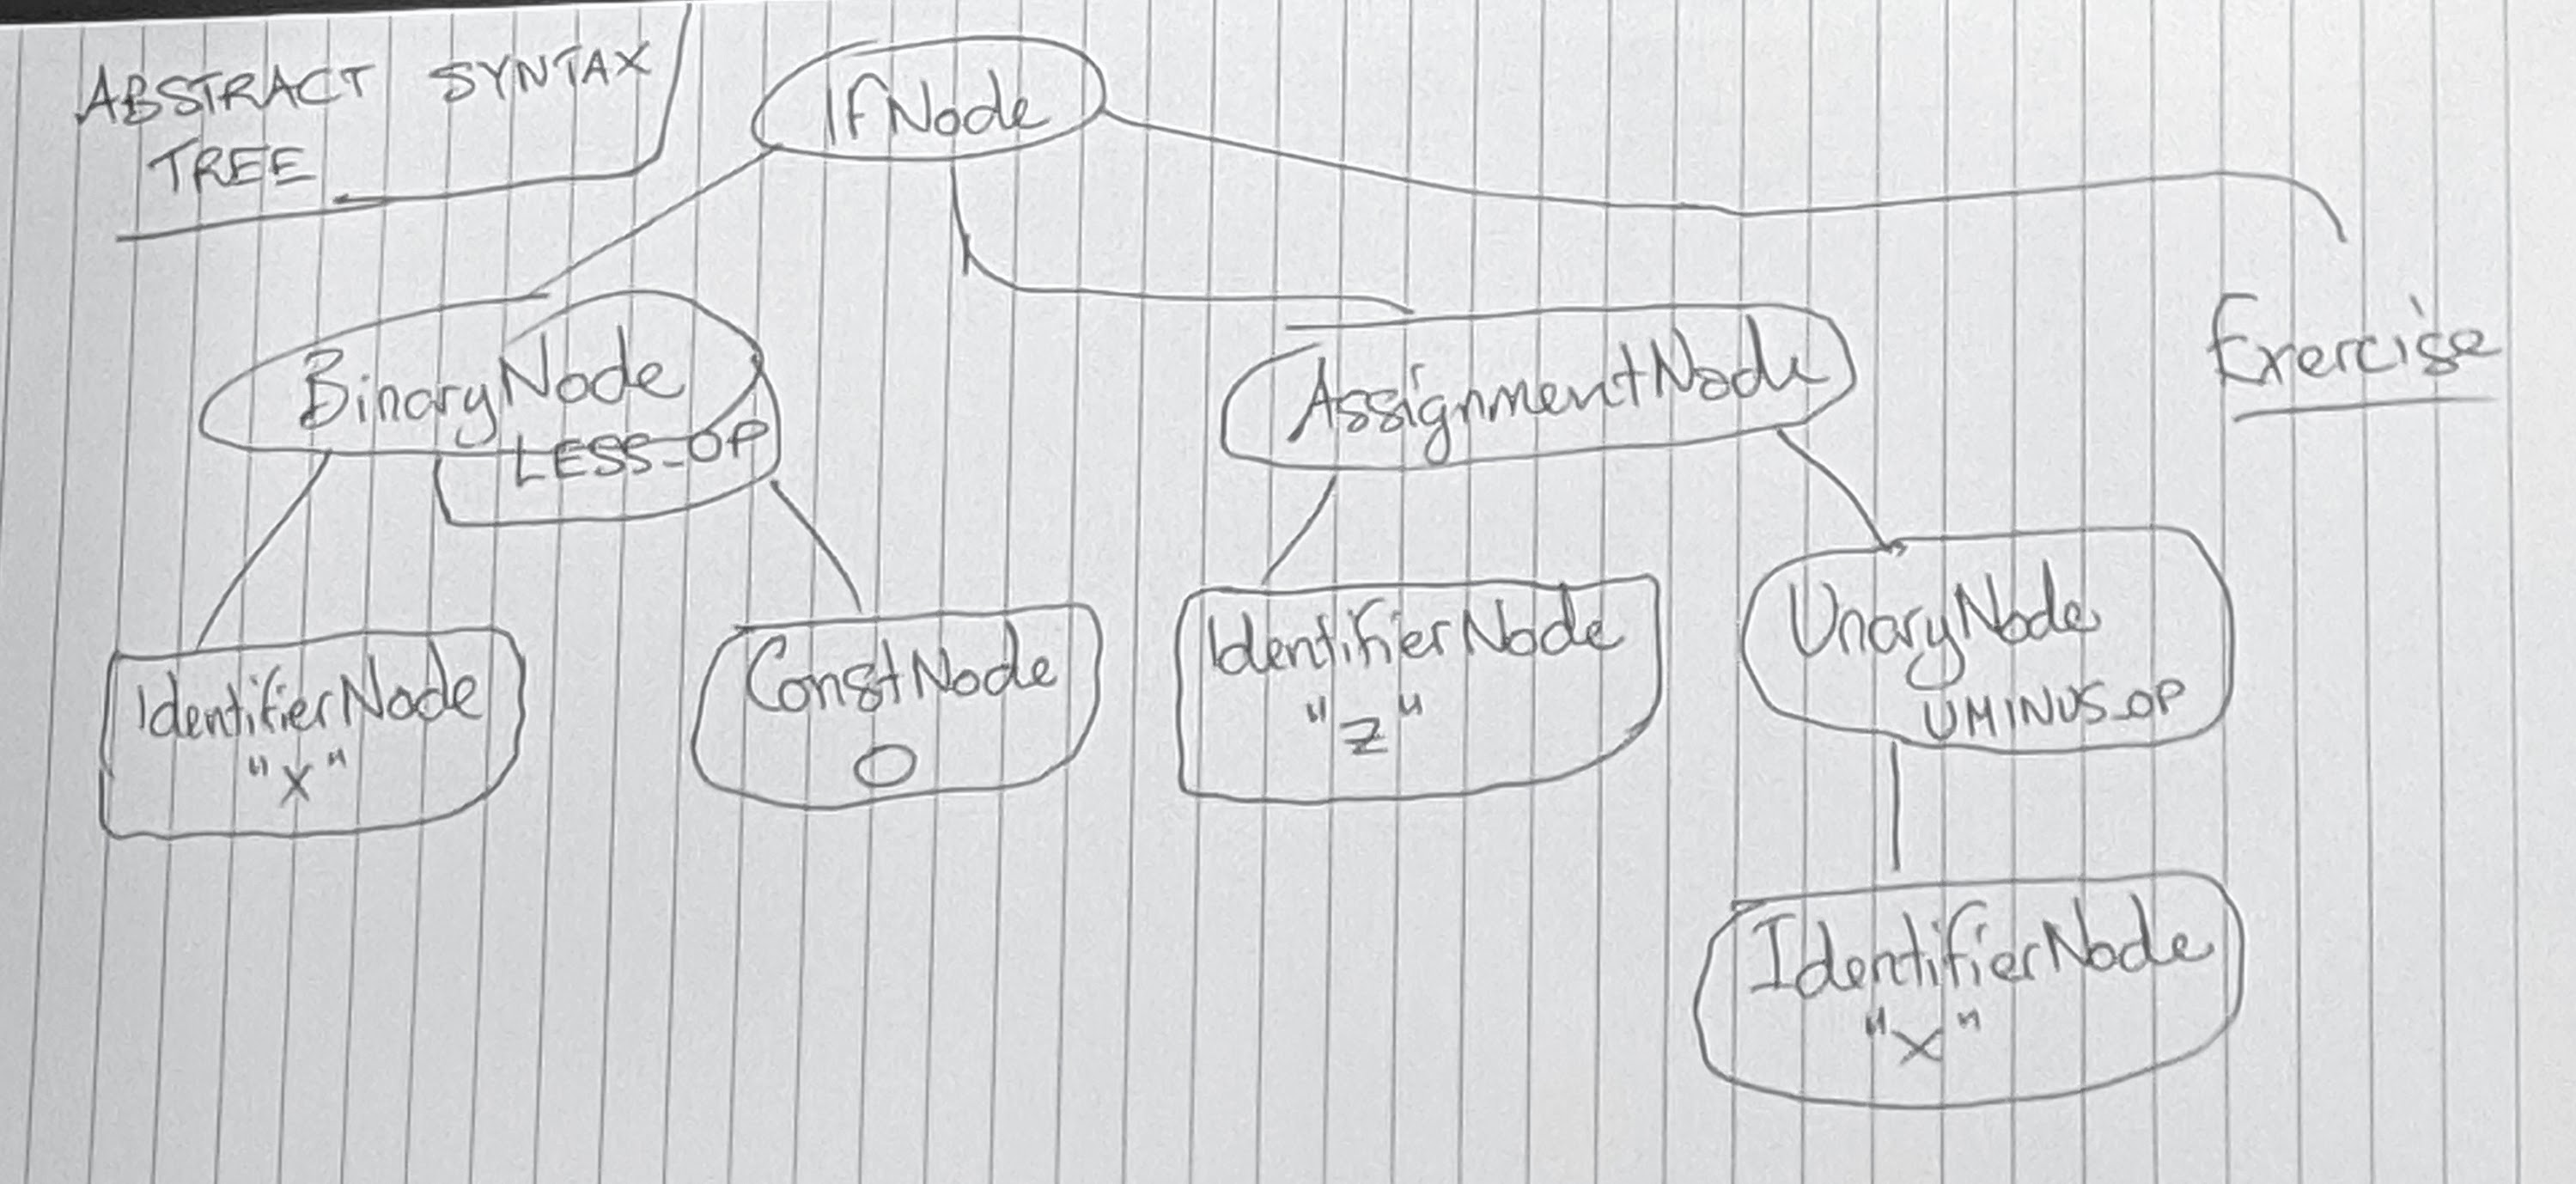 ABSTRACT SYNTAX
TREE
IfNode
BinaryNode
LESS_OP
AssignmentNode
Exercise
IdentifierNode
"X"
ConstNode
0
IdentifierNode
"Z"
UnaryNode
UMINUS_OP
IdentifierNode
"X"